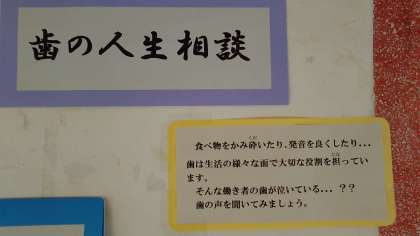 歯の人生相談
食べ物をかみ砕いたり、発音を良くしたり...
歯は生活の様々な面で大切な役割を担ってい
ます。
そんな働き者の歯が泣いている... ??
歯の声を聞いてみましょう。